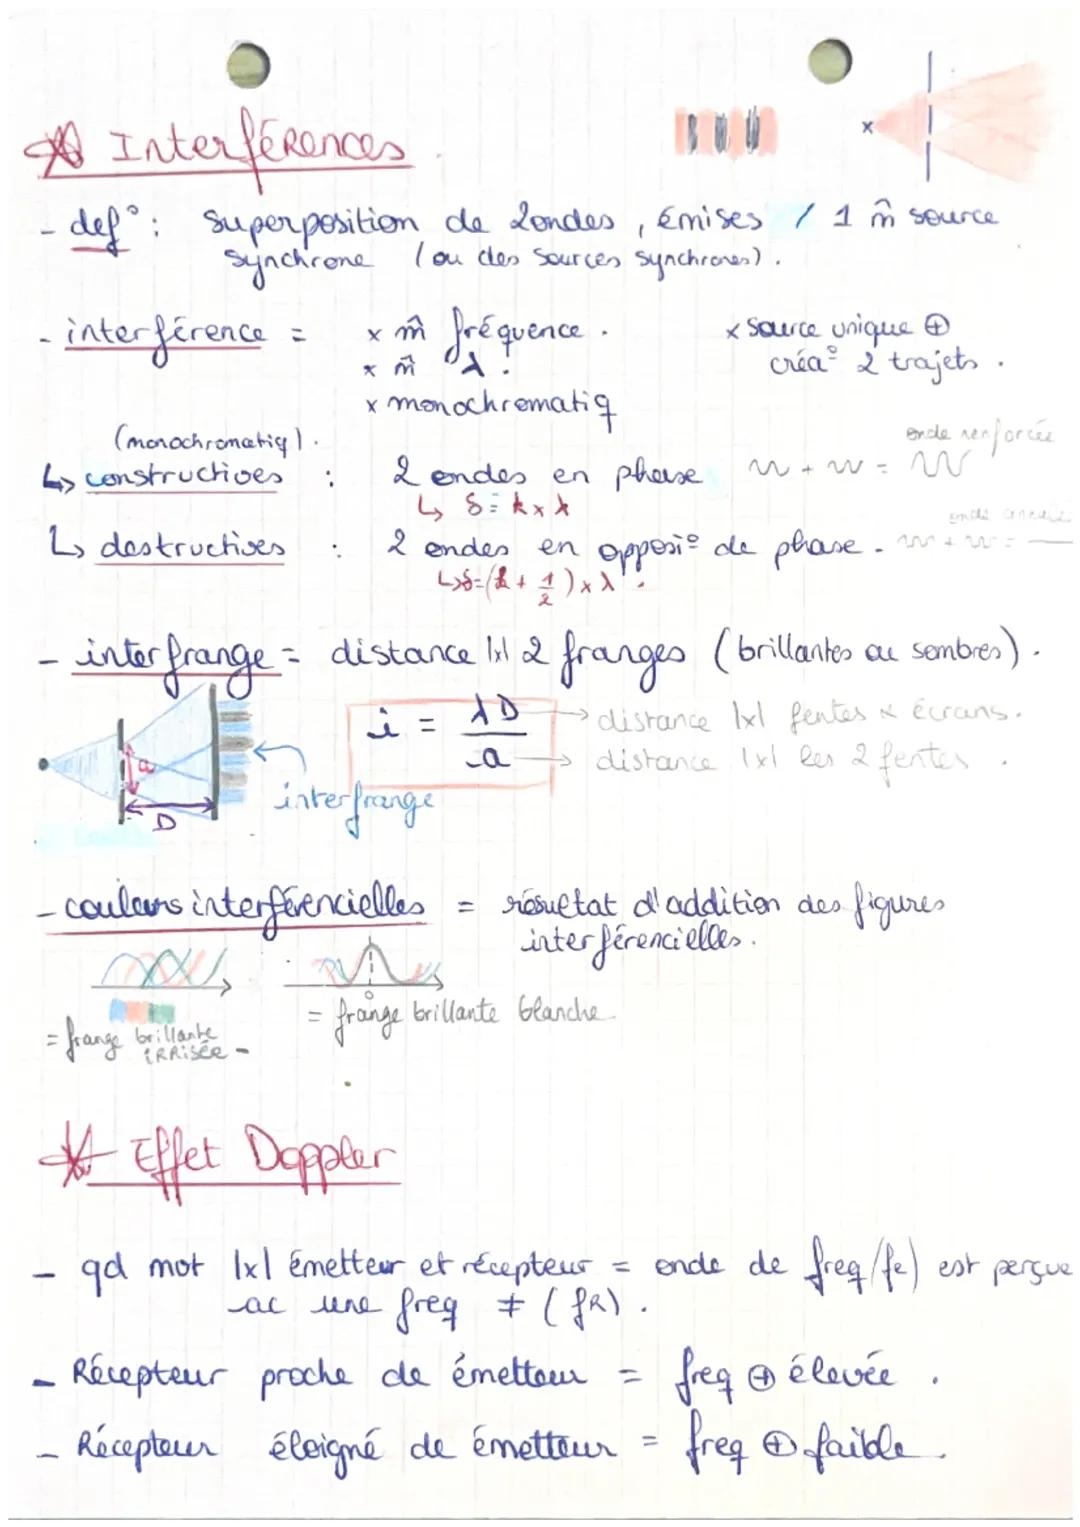 Interférences
- def° : Superposition de 2 ondes, émises / 1 m̂ source
synchrone (ou des sources synchrones).
- interférence = x m̂ fréquence. x source unique ⊕
x m̂ λ. créa° 2 trajets.
x monochromatiq
(monochromatiq). onde renforcée
↳ constructives : 2 ondes en phase + =
↳ δ = k x λ
onde
↳ destructives : 2 ondes en opposi° de phase. + =
↳ δ = (k + 1/2) x λ.
- interfrange = distance |x| 2 franges (brillantes ou sombres).
i = λD / a → distance |x| fentes & écrans.
→ distance |x| les 2 fentes.
a
D
interfrange
- couleurs interférencielles = résultat d'addition des figures
interférencielles.
0
= frange brillante blanche.
= frange brillante
iRRisée -
Effet Doppler
- qd mot |x| émetteur et récepteur = onde de freq (fe) est perçue
ac une freq ≠ (fR).
- Récepteur proche de émetteur = freq ⊕ élevée.
- Récepteur éloigné de émetteur = freq ⊕ faible.